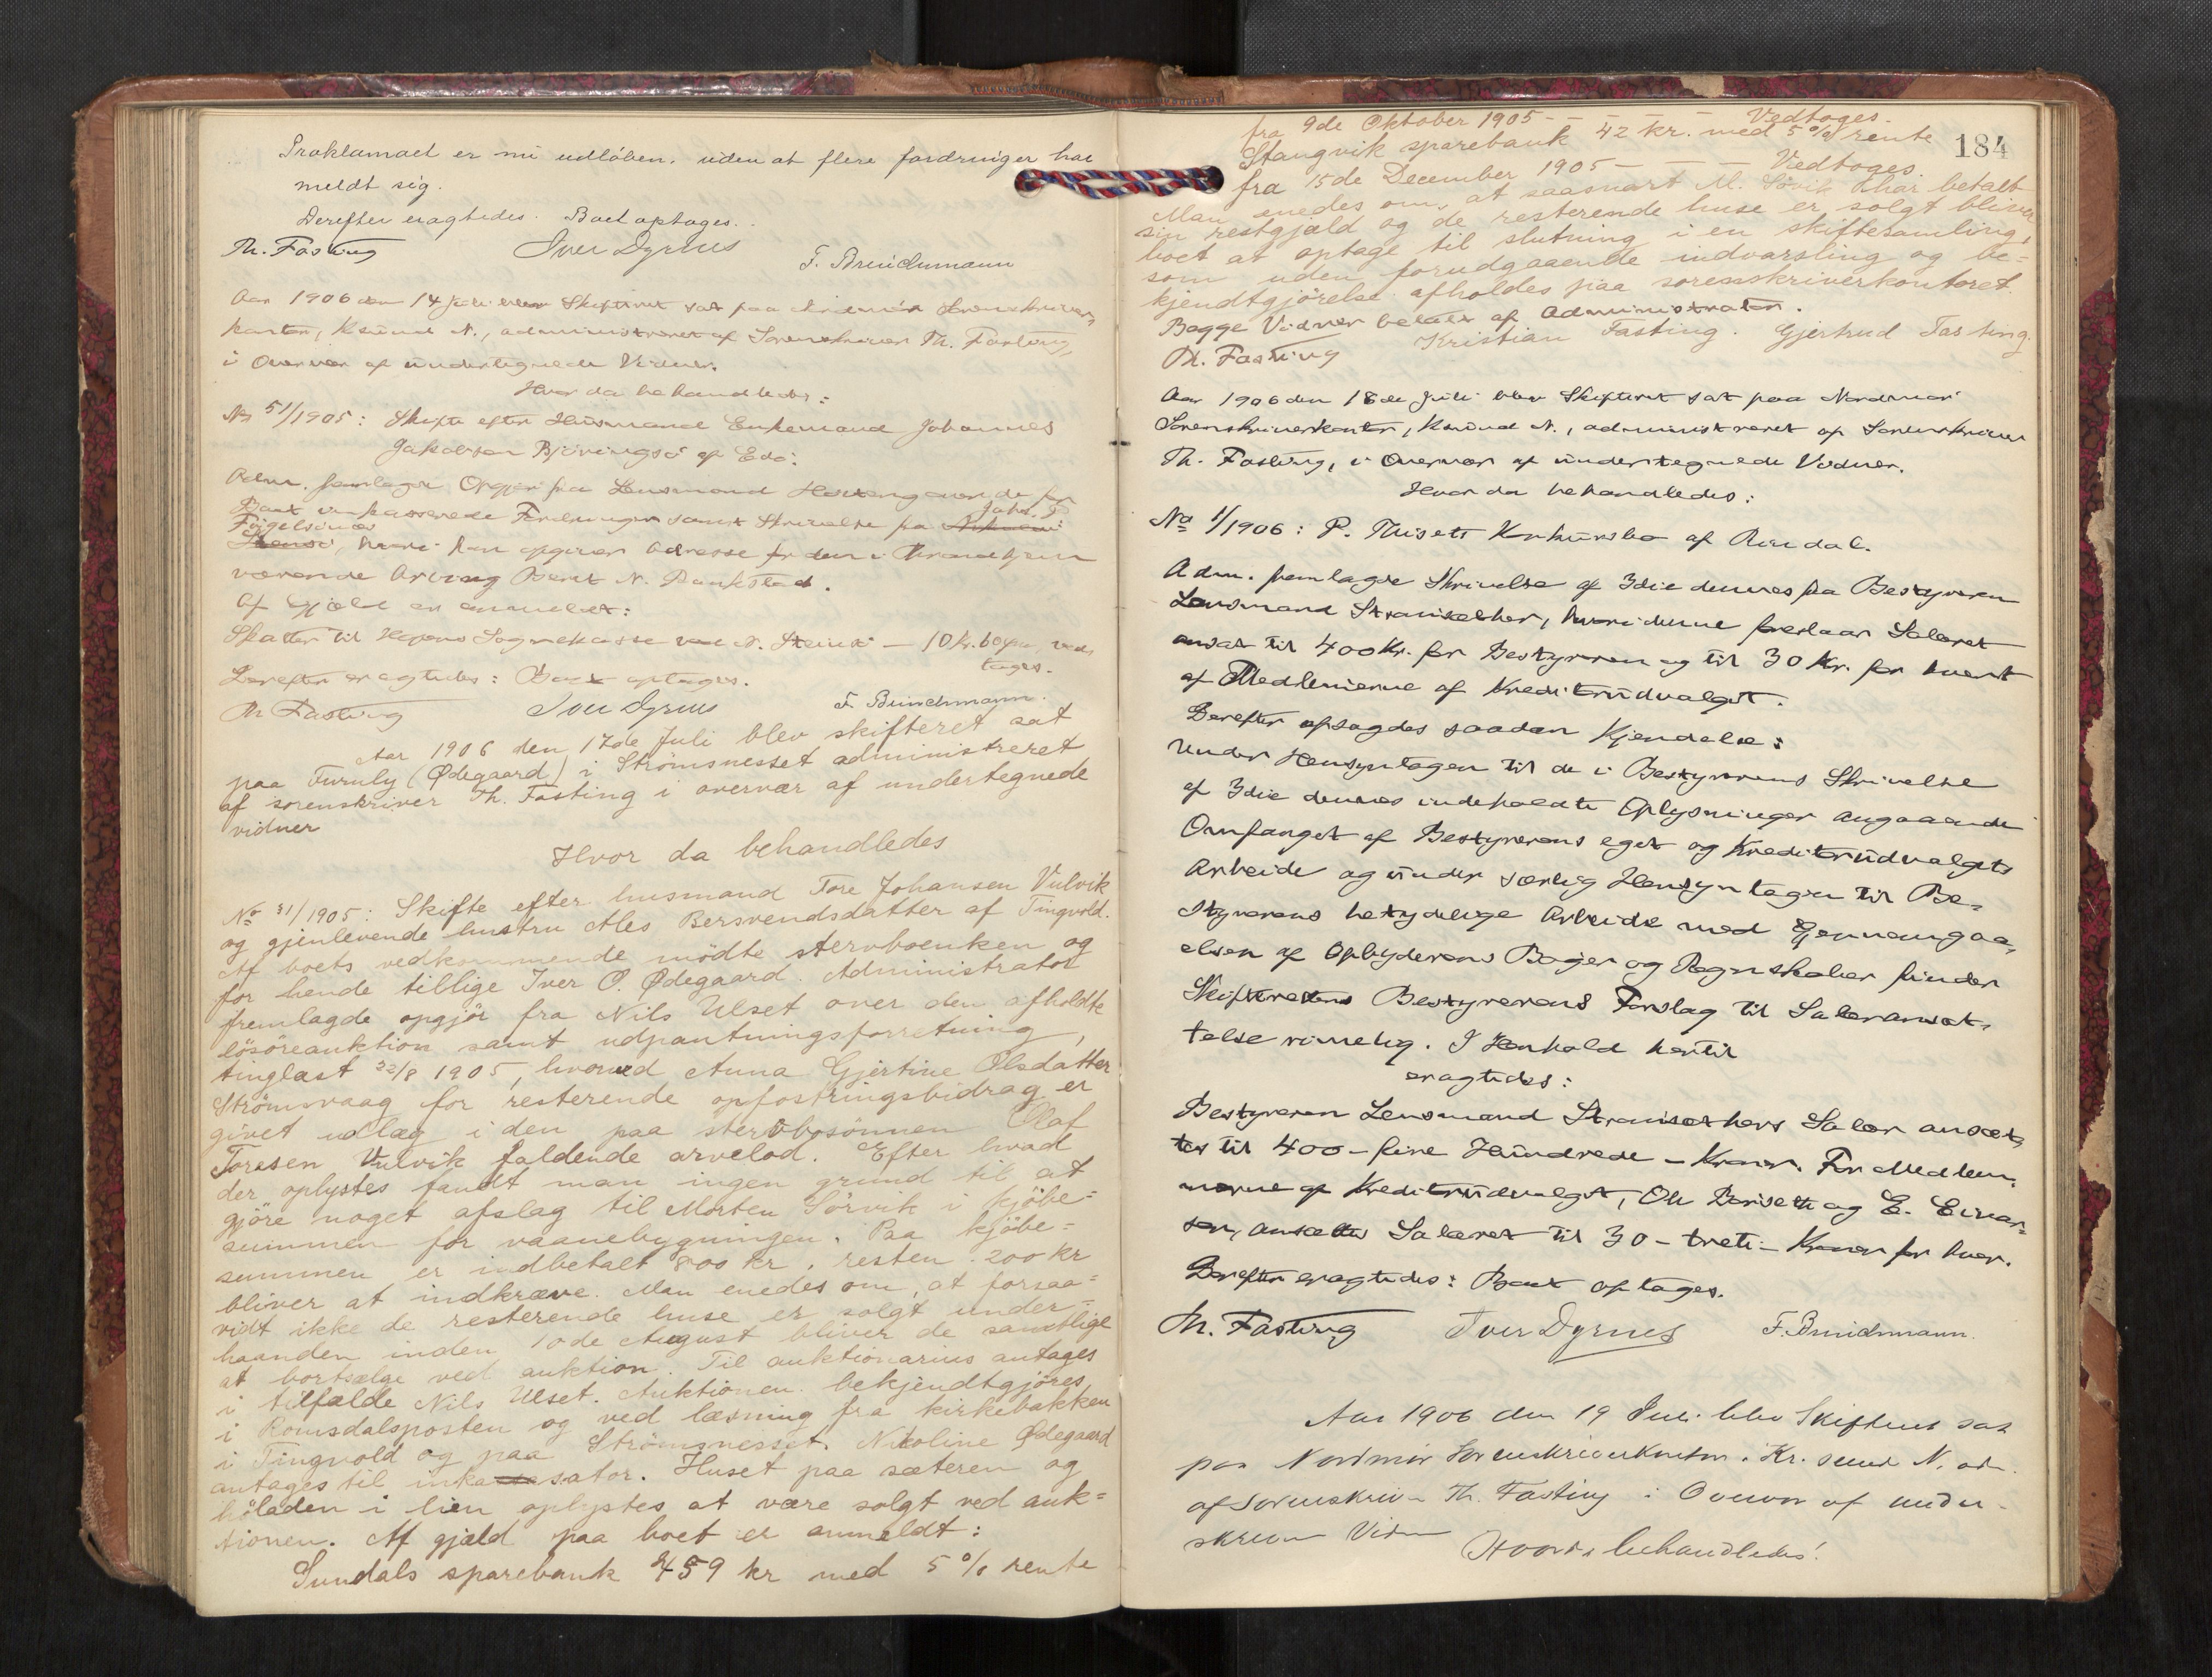 Proklamaet er nu udløben, uden at flere fordringer har
meldt sig.
Derefter eragtedes: Boet optages.
Th. Fasting Iver Dyrnes F. Brinchmann
Aar 1906 den 14 Juli blev Skifteret sat paa Nordmør Sorenskriver-
kontor, Ksund N., administreret af Sorenskriver Th. Fasting,
i Overvær af undertegnede Vidner.
Hvor da behandledes:
No 51/1905: Skifte efter Husmand Enkemand Johannes
Jakobsen Bjøringsø af Edø.
Adm. fremlagde Opgjør fra Lensmand
Boet inkasserede Fordringer samt Skrivelse fra
Johs. J.
Fuggelsnæs
, hvori han opgiver Adresse for den i Trondhjem
værende Arving Beret N. Bankstad.
Af Gjæld er anmeldt:
Skatter til Hopens Sognekasse ved N. — 10 kr. 60 øre, ved-
tages.
Derefter eragtedes: Boet optages.
Th Fasting Iver Dyrnes F. Brinchmann.
Aar 1906 den 17de Juli blev skifteret sat
paa Furuly (Ødegaard) i Strømsnesset administreret
af sorenskriver Th. Fasting i overvær af undertegnede
vidner
Hvor da behandledes
No 31/1905: Skifte efter husmand Tore Johansen Vulvik
og gjenlevende hustru Ales Bersvendsdatter af Tingvold.
Af boets vedkommende mødte stervboenken og
for hende tillige Iver O. Ødegaard. Administrator
fremlagde opgjør fra Nils Ulset over den afholdte
løsøreauktion samt udpantningsforretning,
tinglæst 22/8 1905, hvorved Anna Gjertine Olsdatter
Strømsvaag for resterende opfostringsbidrag er
givet udlæg i den paa stervbosønnen Olaf
Toresen Vulvik faldende arvelod. Efter hvad
der oplystes fandt man ingen grund til at
gjøre noget afslag til Morten Sørvik i kjøbe=
summen for vaanebygningen. Paa kjøbe=
summen er indbetalt 800 kr, resten 200 kr
bliver at indkræve. Man enedes om, at forsaa=
vidt ikke de resterende huse er solgt under=
haanden inden 10de August bliver de samtlige
at bortsælge ved auktion. Til auktionarius antages
i tilfælde Nils Ulset. Auktionen bekjendtgjøres
i Romsdalsposten og ved læsning fra kirkebakken
i Tingvold og paa Strømsnesset. Nikoline Ødegaard
antages til inkassator. Huset paa sæteren og
høladen i lien oplystes at være solgt ved auk=
tionen. Af gjæld paa boet er anmeldt:
Sundals sparebank 459 kr med 5 % rente
184
fra 9de Oktober 1905 - - - - Vedtoges.
Stangvik sparebank 42 kr. med 5 % rente
fra 15de December 1905 - - - Vedtoges.
Man enedes om, at saasnart M. Sørvik har betalt
sin restgjæld og de resterende huse er solgt bliver
boet at optage til slutning i en skiftesamling,
som uden forudgaaende indvarsling og be=
kjendtgjørelse afholdes paa sorenskriverkontoret.
Begge Vidner betalt af Administrator.
Th. Fasting Kristian Fasting. Gjertrud Fasting.
Aar 1906 den 18de Juli blev Skifteret sat paa Nordmør
Sorenskriverkontor, Ksund N., administreret af Sorenskriver
Th. Fasting, i Overvær af undertegnede Vidner.
Hvor da behandledes:
No 1/1906: P. Thisets Konkursbo af Rindal.
Adm. fremlagde Skrivelse af 3die dennes fra Bestyreren
Lensmand Strandsæther, hvori denne foreslaar Salæret
ansat til 400 Kr. for Bestyreren og til 30 Kr. for hvert
af Medlemerne af Kreditorudvalget.
Derefter afsagdes saadan Kjendelse:
Under Hensyntagen til de i Bestyrerens Skrivelse
af 3die dennes indeholdte Oplysninger angaaende
Omfanget af Bestyrerens eget og Kreditorudvalgets
Arbeide og under særlig Hensyntagen til Be-
styrerens betydelige Arbeide med Gjennemgaa-
elsen af Opbyderens Bøger og Regnskaber finder
Skifteretten Bestyrerens Forslag til Salæransæt-
telse rimelig. I Henhold hertil
eragtedes:
Bestyreren Lensmand Strandsæthers Salær ansæt-
tes til 400 - fire Hundrede - Kroner. For Medlem-
merne af Kreditorudvalget, Ole Bariseth og E. Einar-
sen, ansættes Salæret til 30 - treti - Kroner for hver.
Derefter eragtedes: Boet optages.
Th. Fasting Iver Dyrnes F. Brinchmann.
Aar 1906 den 19 Juli blev Skifteret sat
paa Nordmør Sorenskriverkontor i Kr. sund N. adm.
af Sorenskriver Th. Fasting i Overvær af under-
skrevne Vidner
Hvorda behandledes: